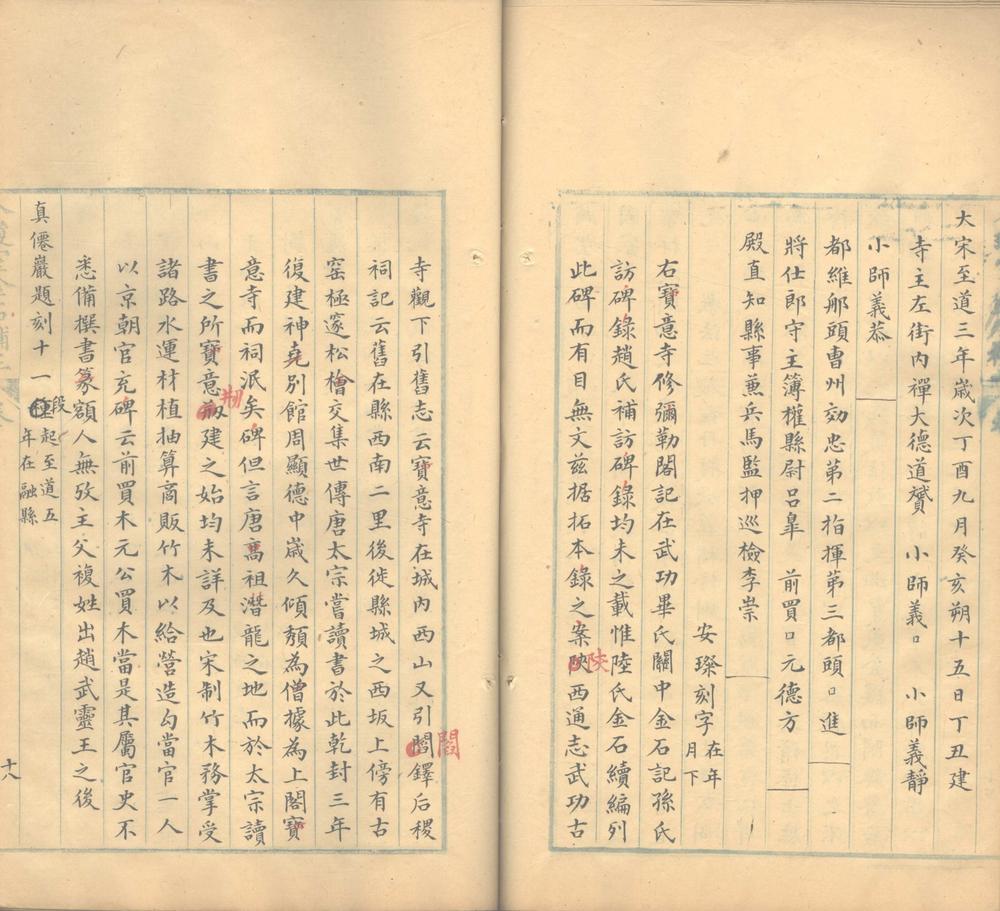 大宋至道三年歲次丁酉九月癸亥朔十五日丁丑建
寺主左街內禪大德道贇 小師義□ 小師義靜
小師義恭
都維那頭曹州効忠第二指揮第三都頭□進
將仕郎守主簿權縣尉呂皐 前買□元德方
殿直知縣事蒹兵馬監押巡檢李崇
安璨刻字在年月下
右寶意寺修彌勒閣記在武功畢氏關中金石記孫氏
訪碑錄趙氏補訪碑錄均未之載惟陸氏金石續編列
此碑而有目無文茲据拓本錄之案陝西通志武功古
寺觀下引舊志云寶意寺在城內西山又引閻鐸后稷
祠記云舊在縣西南二里後徙縣城之西坂上傍有古
窰極邃松檜交集世傳唐太宗嘗讀書於此乾封三年
復建神堯別館周顯德中歲久傾頽為僧據為上閣寶
意寺而祠泯矣碑但言唐高祖潛龍之地而於太宗讀
書之所寶意刱建之始均未詳及也宋制竹木務掌受
諸路水運材植抽算商販竹木以給營造勾當官一人
以京朝官充碑云前買木元公買木當是其屬官史不
悉備撰書篆額人無攷主父複姓出趙武靈王之後
真僊巖題刻十一段起至道五年在融縣
十八